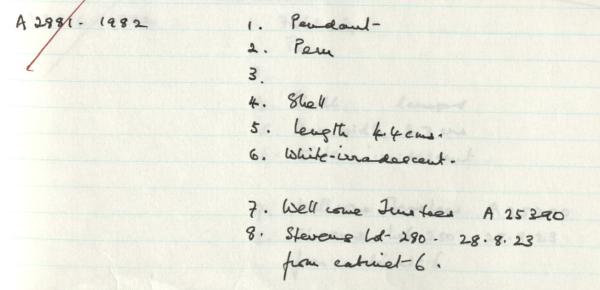 A 2981 - 1982
1. Pendant -
2. Peru
3.
4. Shell
5. length 4.4cms.
6. White-irradescent.
7. Wellcome Trustees A 25390
8. Stevens Lot 280. 28.8.23
from cabinet 6.